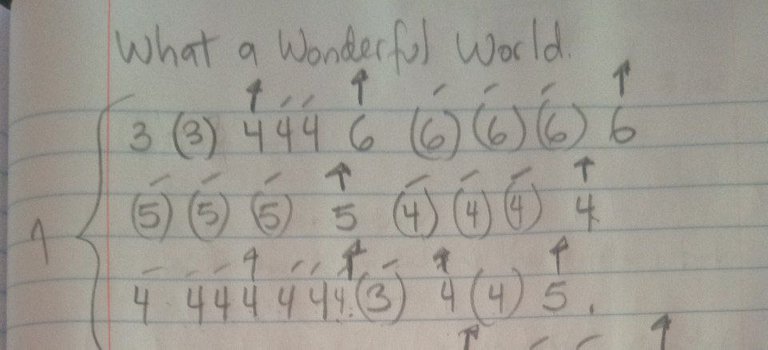 What a Wonderful World.
3 (3) 4 4 4 6 (6) (6) (6) 6
(5) (5) (5) 5 (4) (4) (4) 4
1
4 4 4 4 4 4 4 (3) 4 (4) 5 .